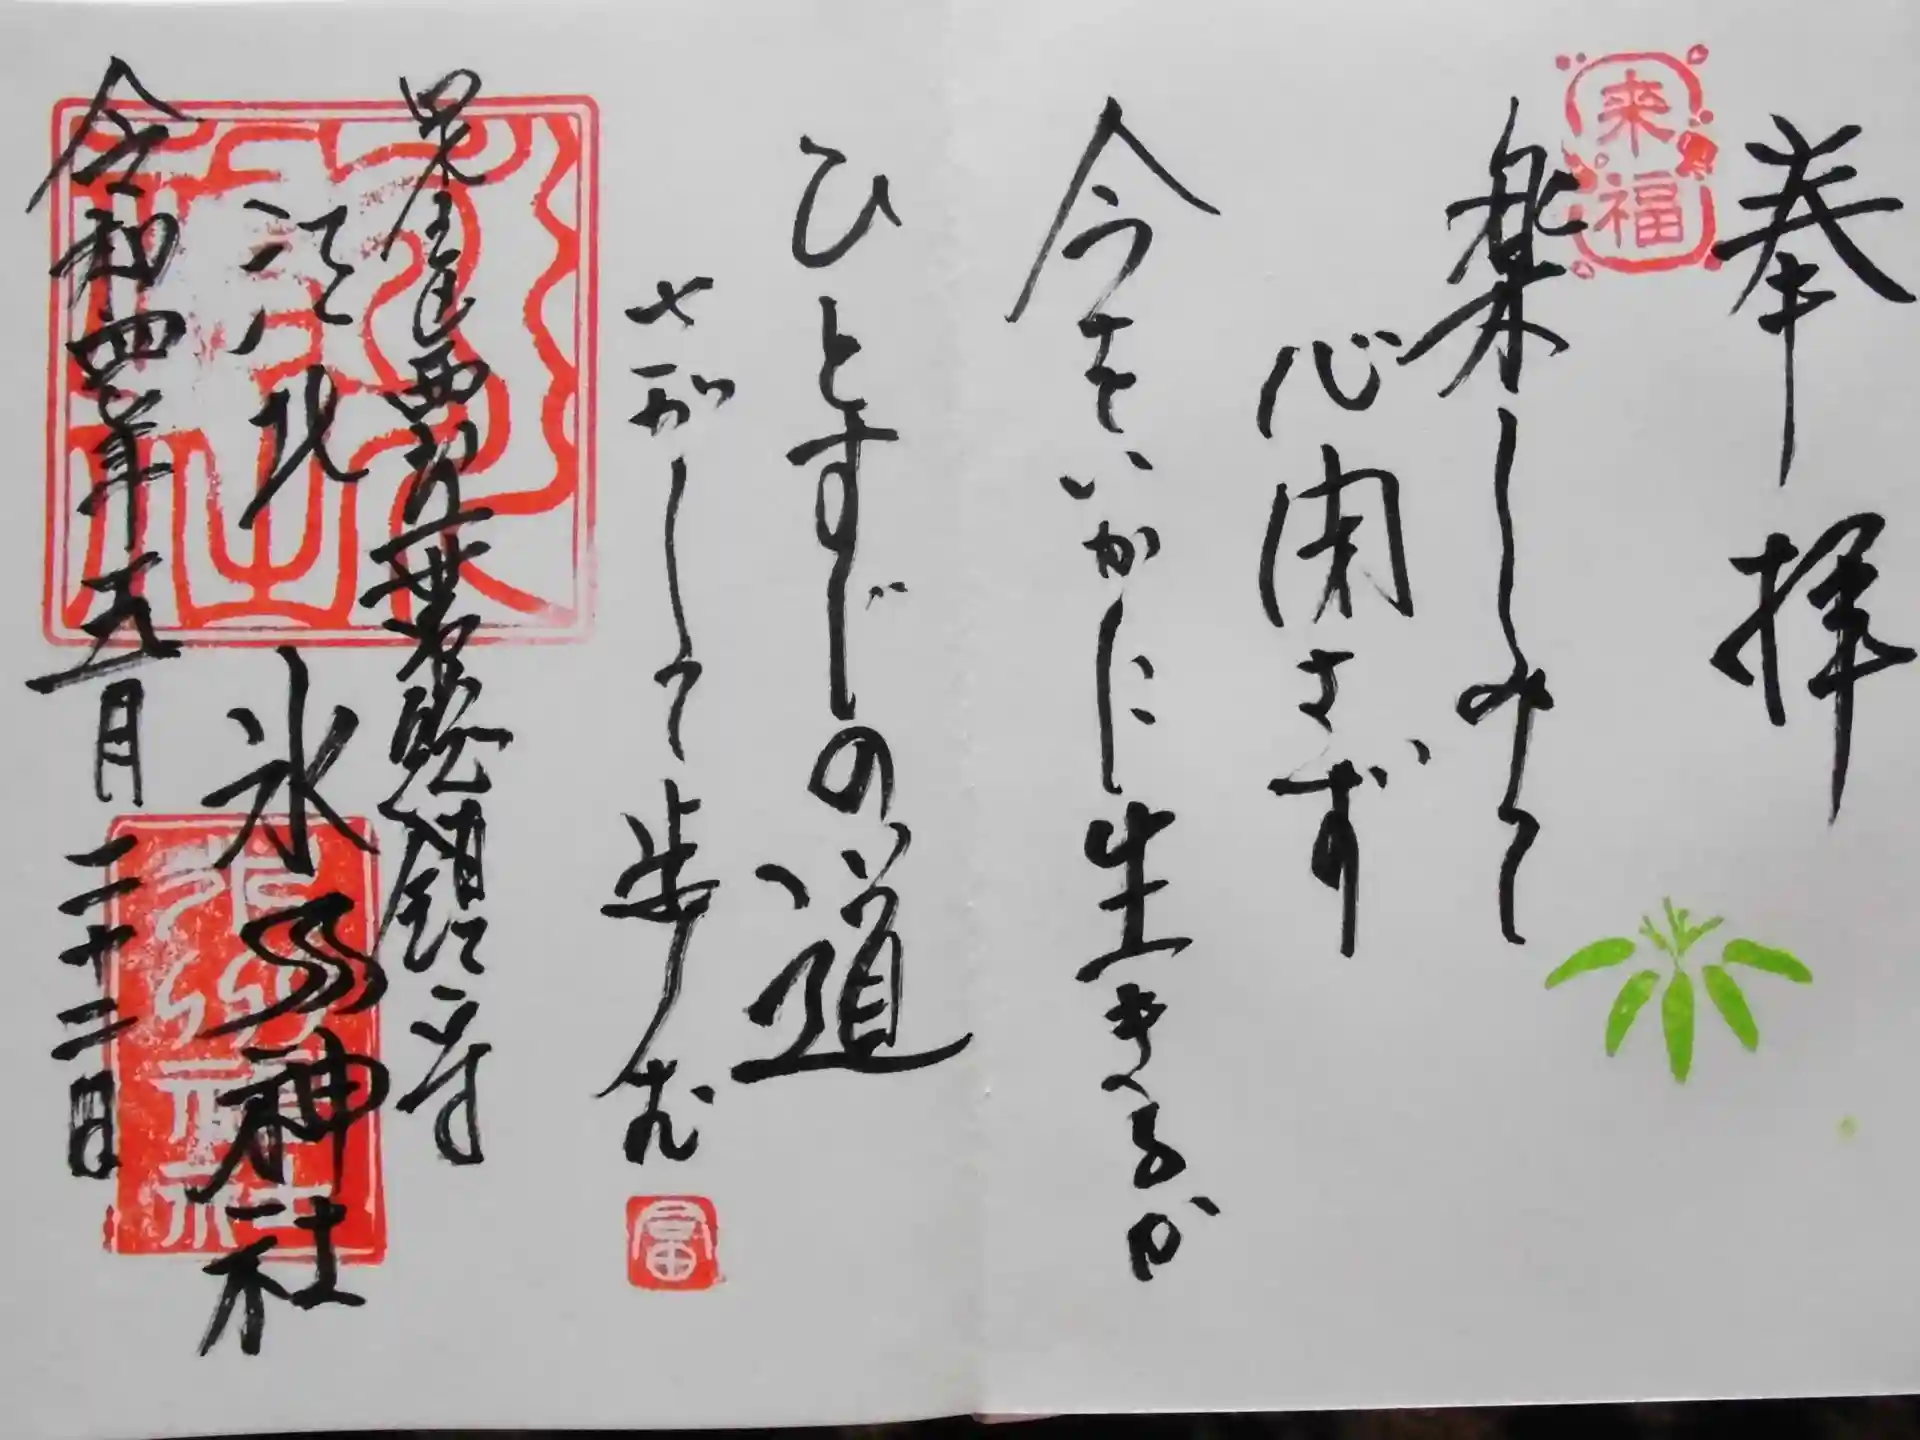 奉拝
来福
楽しみて
心閉さず
今をいかに生きるか
ひとすじの道
して歩む
富
総鎮守
江北
氷川神社
氷川神社
令和四年五月二十二日